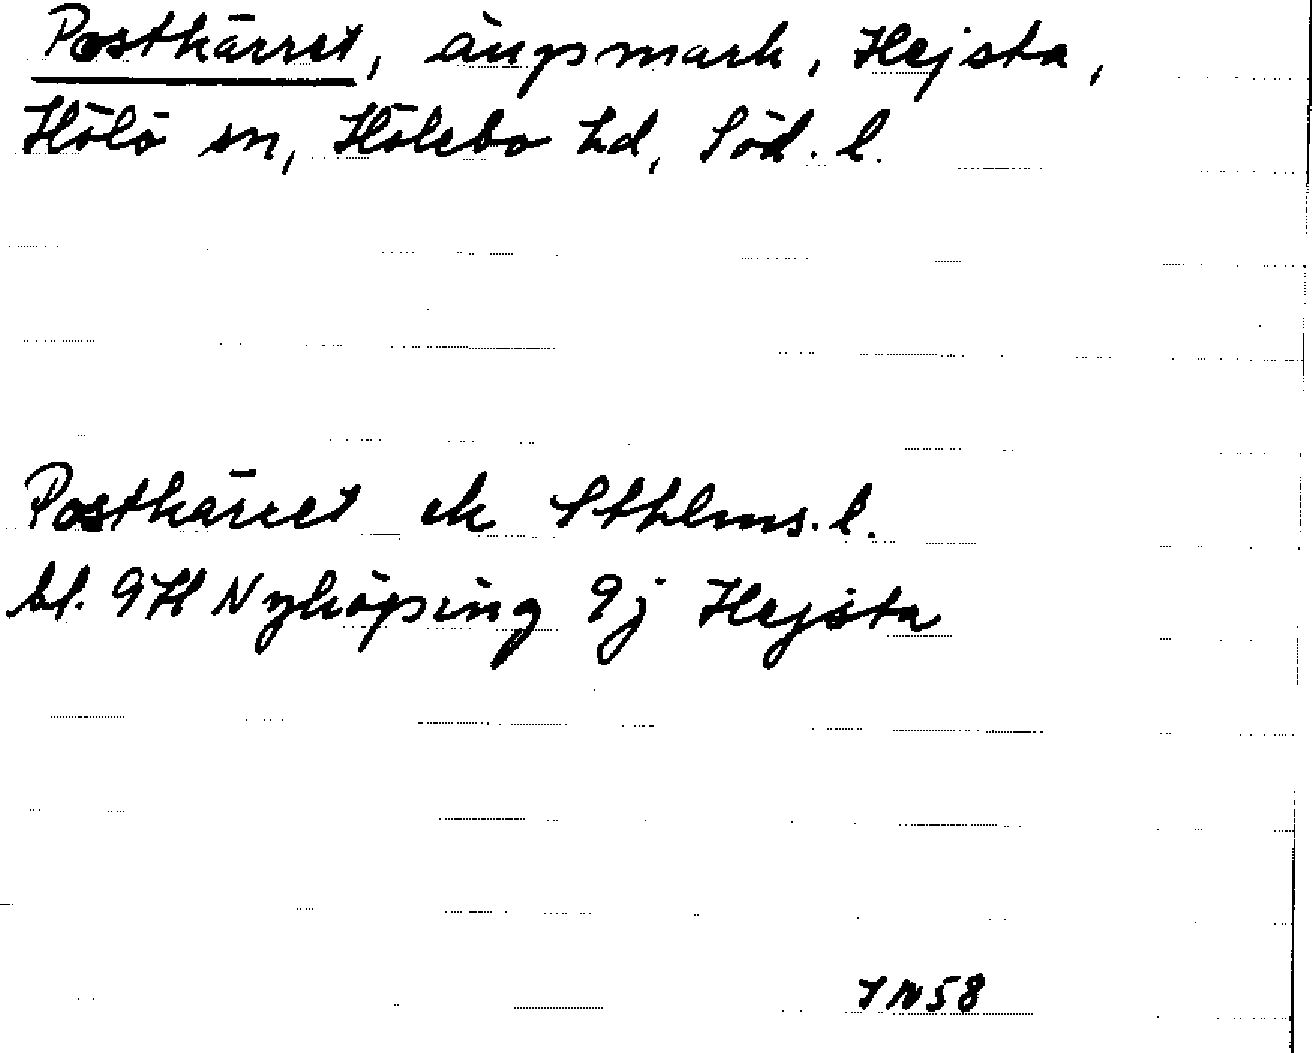 Postkärret, ängsmark, Hejsta,
Hölö sn, Hölebo hd, Söd. l.
Postkärret ek Sthlms. l.
bl. 9H Nyköping 9j Hejsta
IN58